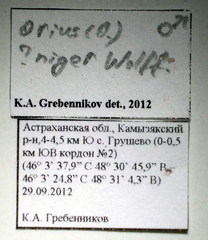 Orius (O.) ♂
? niger Wolff.
K.A. Grebennikov det., 2012
Астраханская обл., Камызякский
р-н,4-4,5 км Ю с. Грушево (0-0,5
км ЮВ кордон №2)
(46° 3ʹ 37,9ʺ С 48° 30ʹ 45,9ʺ В-
46° 3ʹ 24,8ʺ С 48° 31ʹ 4,3ʺ В)
29.09.2012
К.А. Гребенников